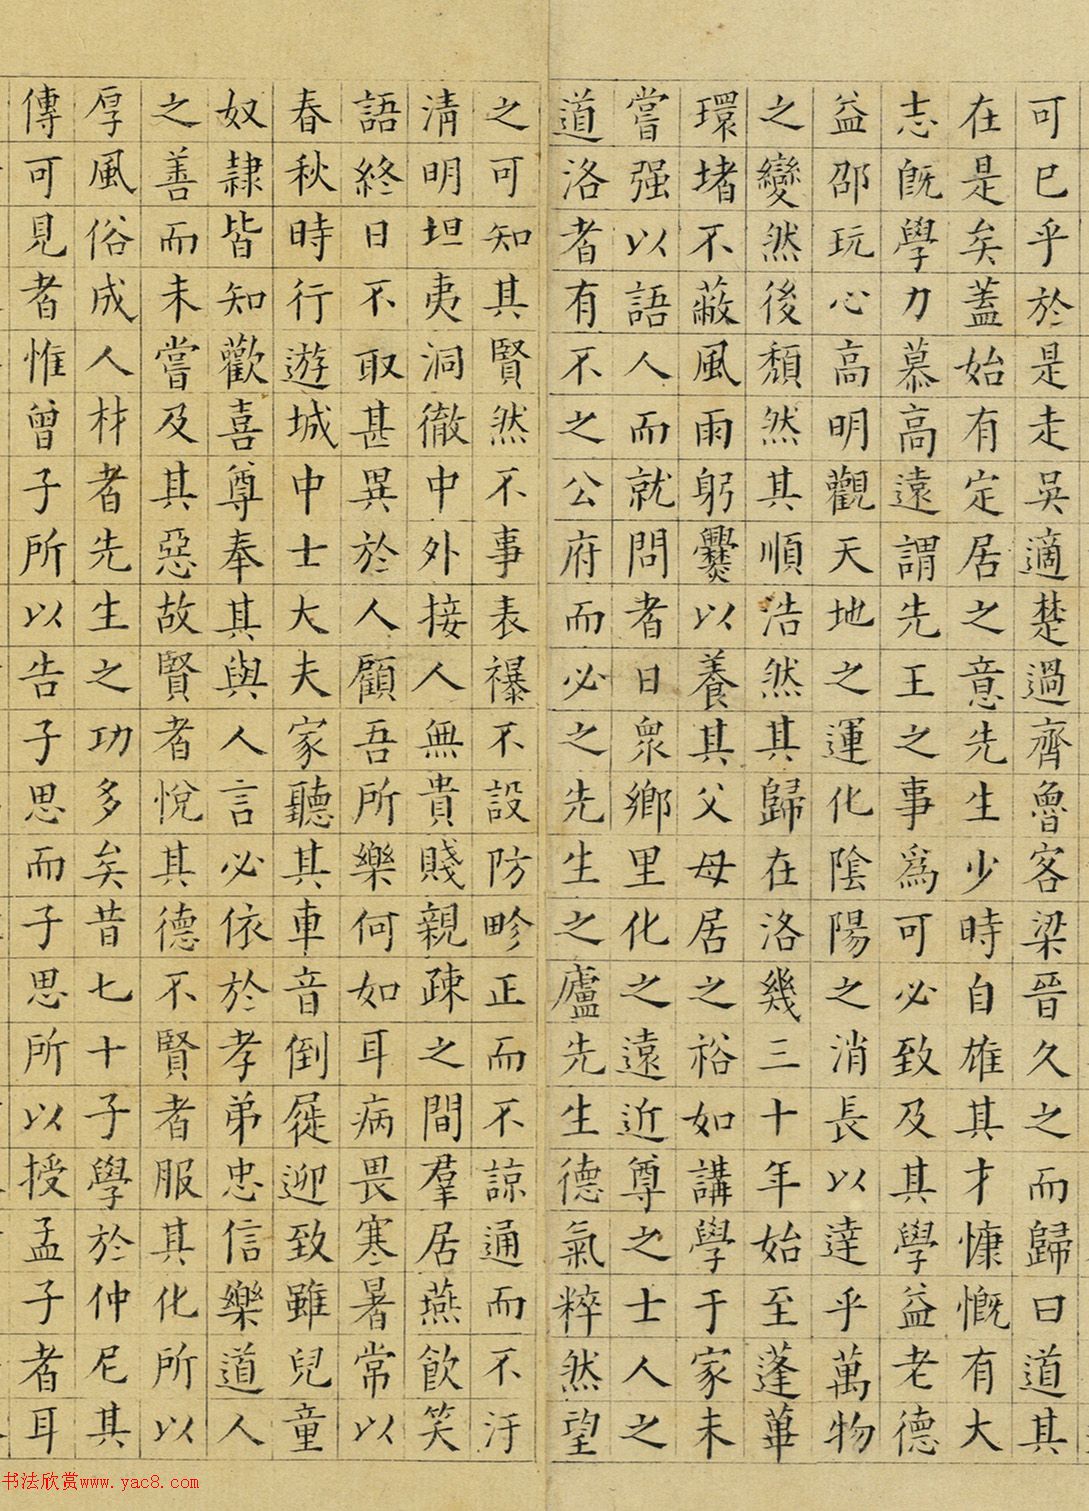 可已乎於是走吳適楚過齊魯客梁晉久之而歸曰道其
在是矣蓋始有定居之意先生少時自雄其才慷慨有大
志旣學力慕高遠謂先王之事爲可必致及其學益老德
益邵玩心高明觀天地之運化陰陽之消長以達乎萬物
之變然後頹然其順浩然其歸在洛幾三十年始至蓬蓽
環堵不蔽風雨躬爨以養其父母居之裕如講學于家未
嘗强以語人而就問者日眾鄉里化之遠近尊之士人之
道洛者有不之公府而必之先生之廬先生德氣粹然望
之可知其賢然不事表襮不設防畛正而不諒通而不汙
清明坦夷洞徹中外接人無貴賤親疎之間羣居燕飲笑
語終日不取甚異於人顧吾所樂何如耳病畏寒暑常以
春秋時行遊城中士大夫家聽其車音倒屣迎致雖兒童
奴隸皆知歡喜尊奉其與人言必依於孝弟忠信樂道人
之善而未嘗及其惡故賢者悅其德不賢者服其化所以
厚風俗成人材者先生之功多矣昔七十子學於仲尼其
傳可見者惟曾子所以告子思而子思所以授孟子者耳
书法欣赏www.yac8.com